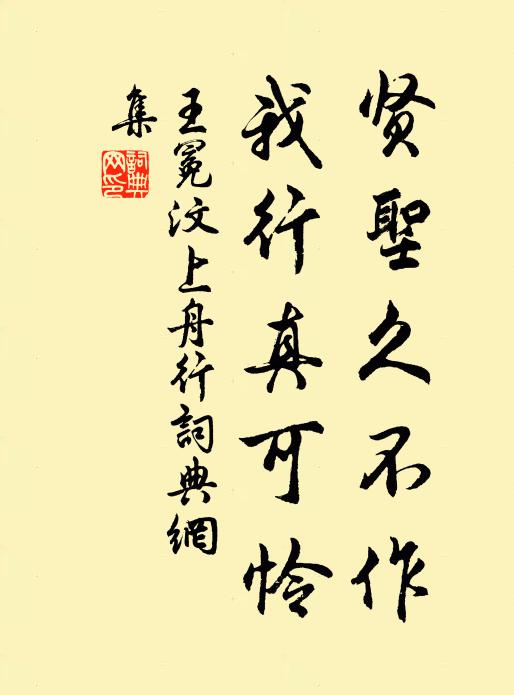 贤聖久不作
我行真可怜
王冕汶上舟行詞典網
集
詞典
网印